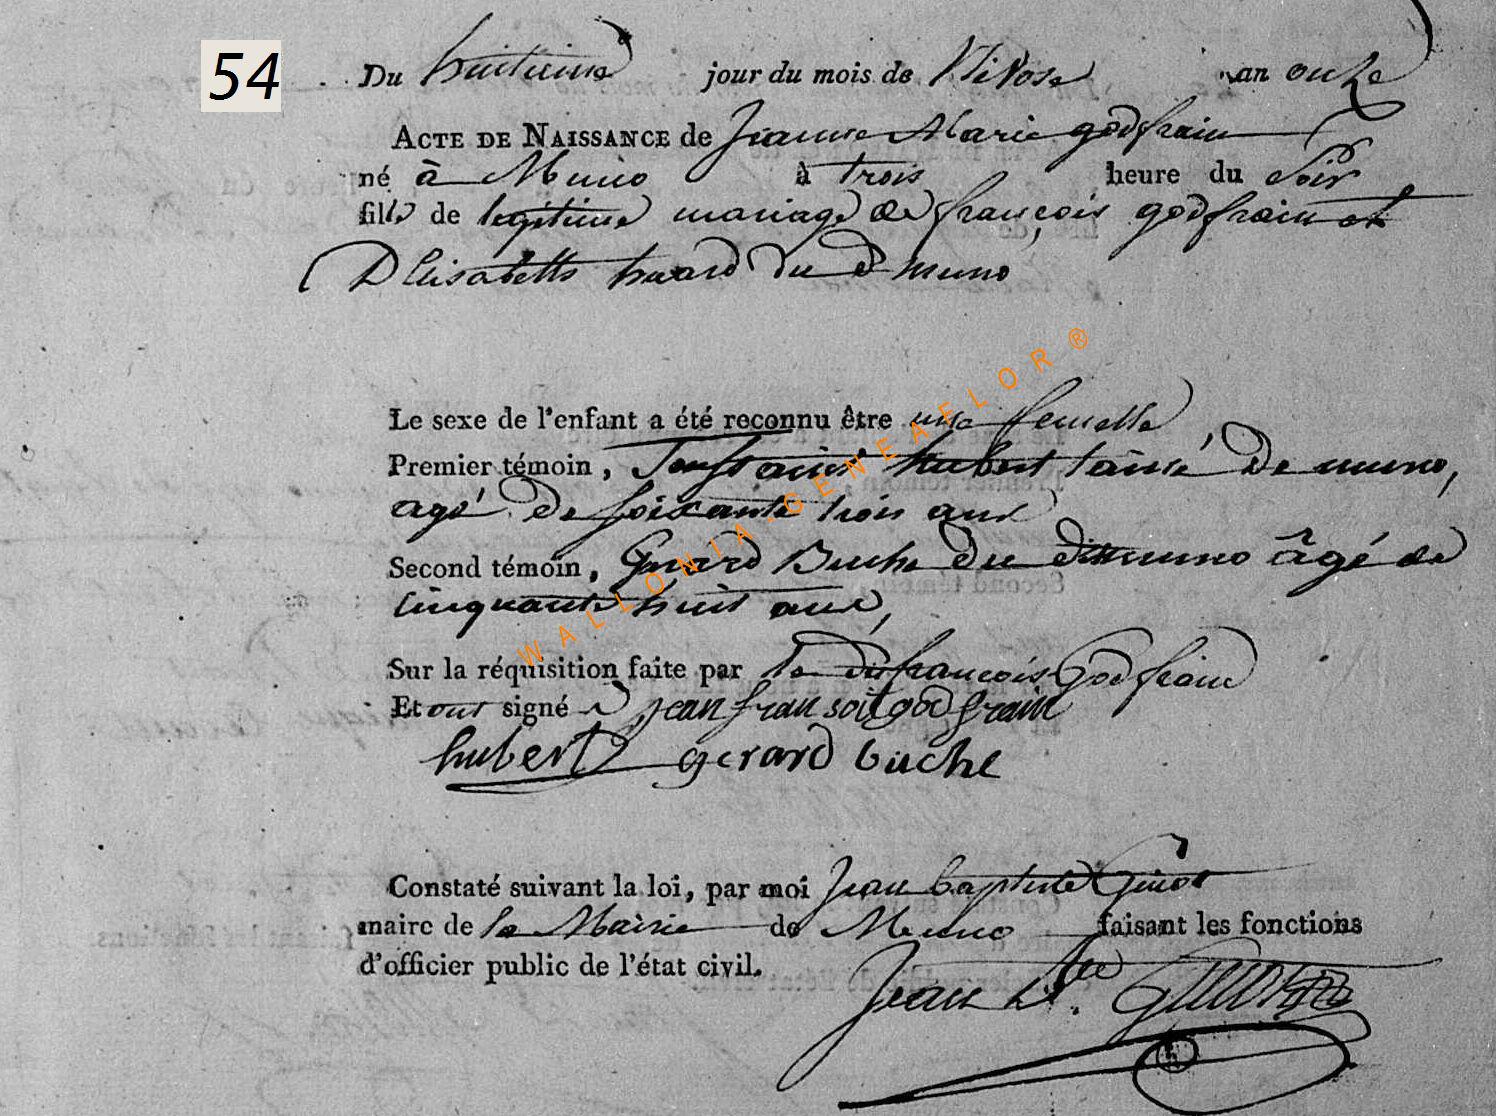 54
Du huitieme jour du mois de Nivose an onze
ACTE DE NAISSANCE de Jeanne Marie godfrain
né à Muno à trois heure du Soir
fille de legitime mariage de françois godfrain et
D'Elisabette huard du d muno
Le sexe de l'enfant a été reconnu être une femelle
Premier témoin, Toussaint hubert lainé De muno,
agé De soixante trois ans
Second témoin, Gerard Buche du dit muno âgé de
cinquante huit ans,
Sur la réquisition faite par le dit françois Godfrain
Et ont signé jean fransoit godfrain
hubert gerard buche
Constaté suivant la loi, par moi Jean baptiste Guiot
maire de la Mairie de Muno faisant les fonctions
d'officier public de l'état civil.
Jean Bte Guiot
WALLONIA-GENEAELOR®